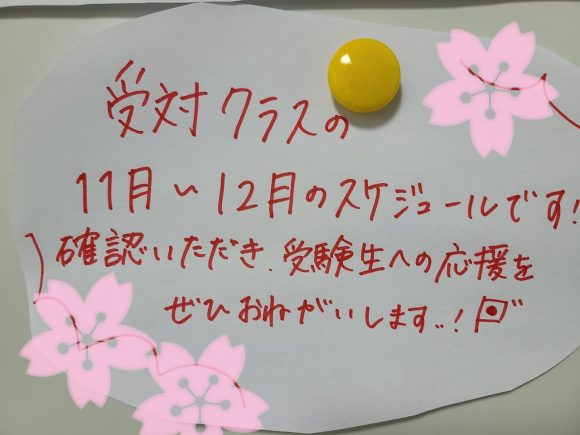 受対クラスの
11月〜12月のスケジュールです!
確認いただき、受験生への応援を
ぜひおねがいします..!